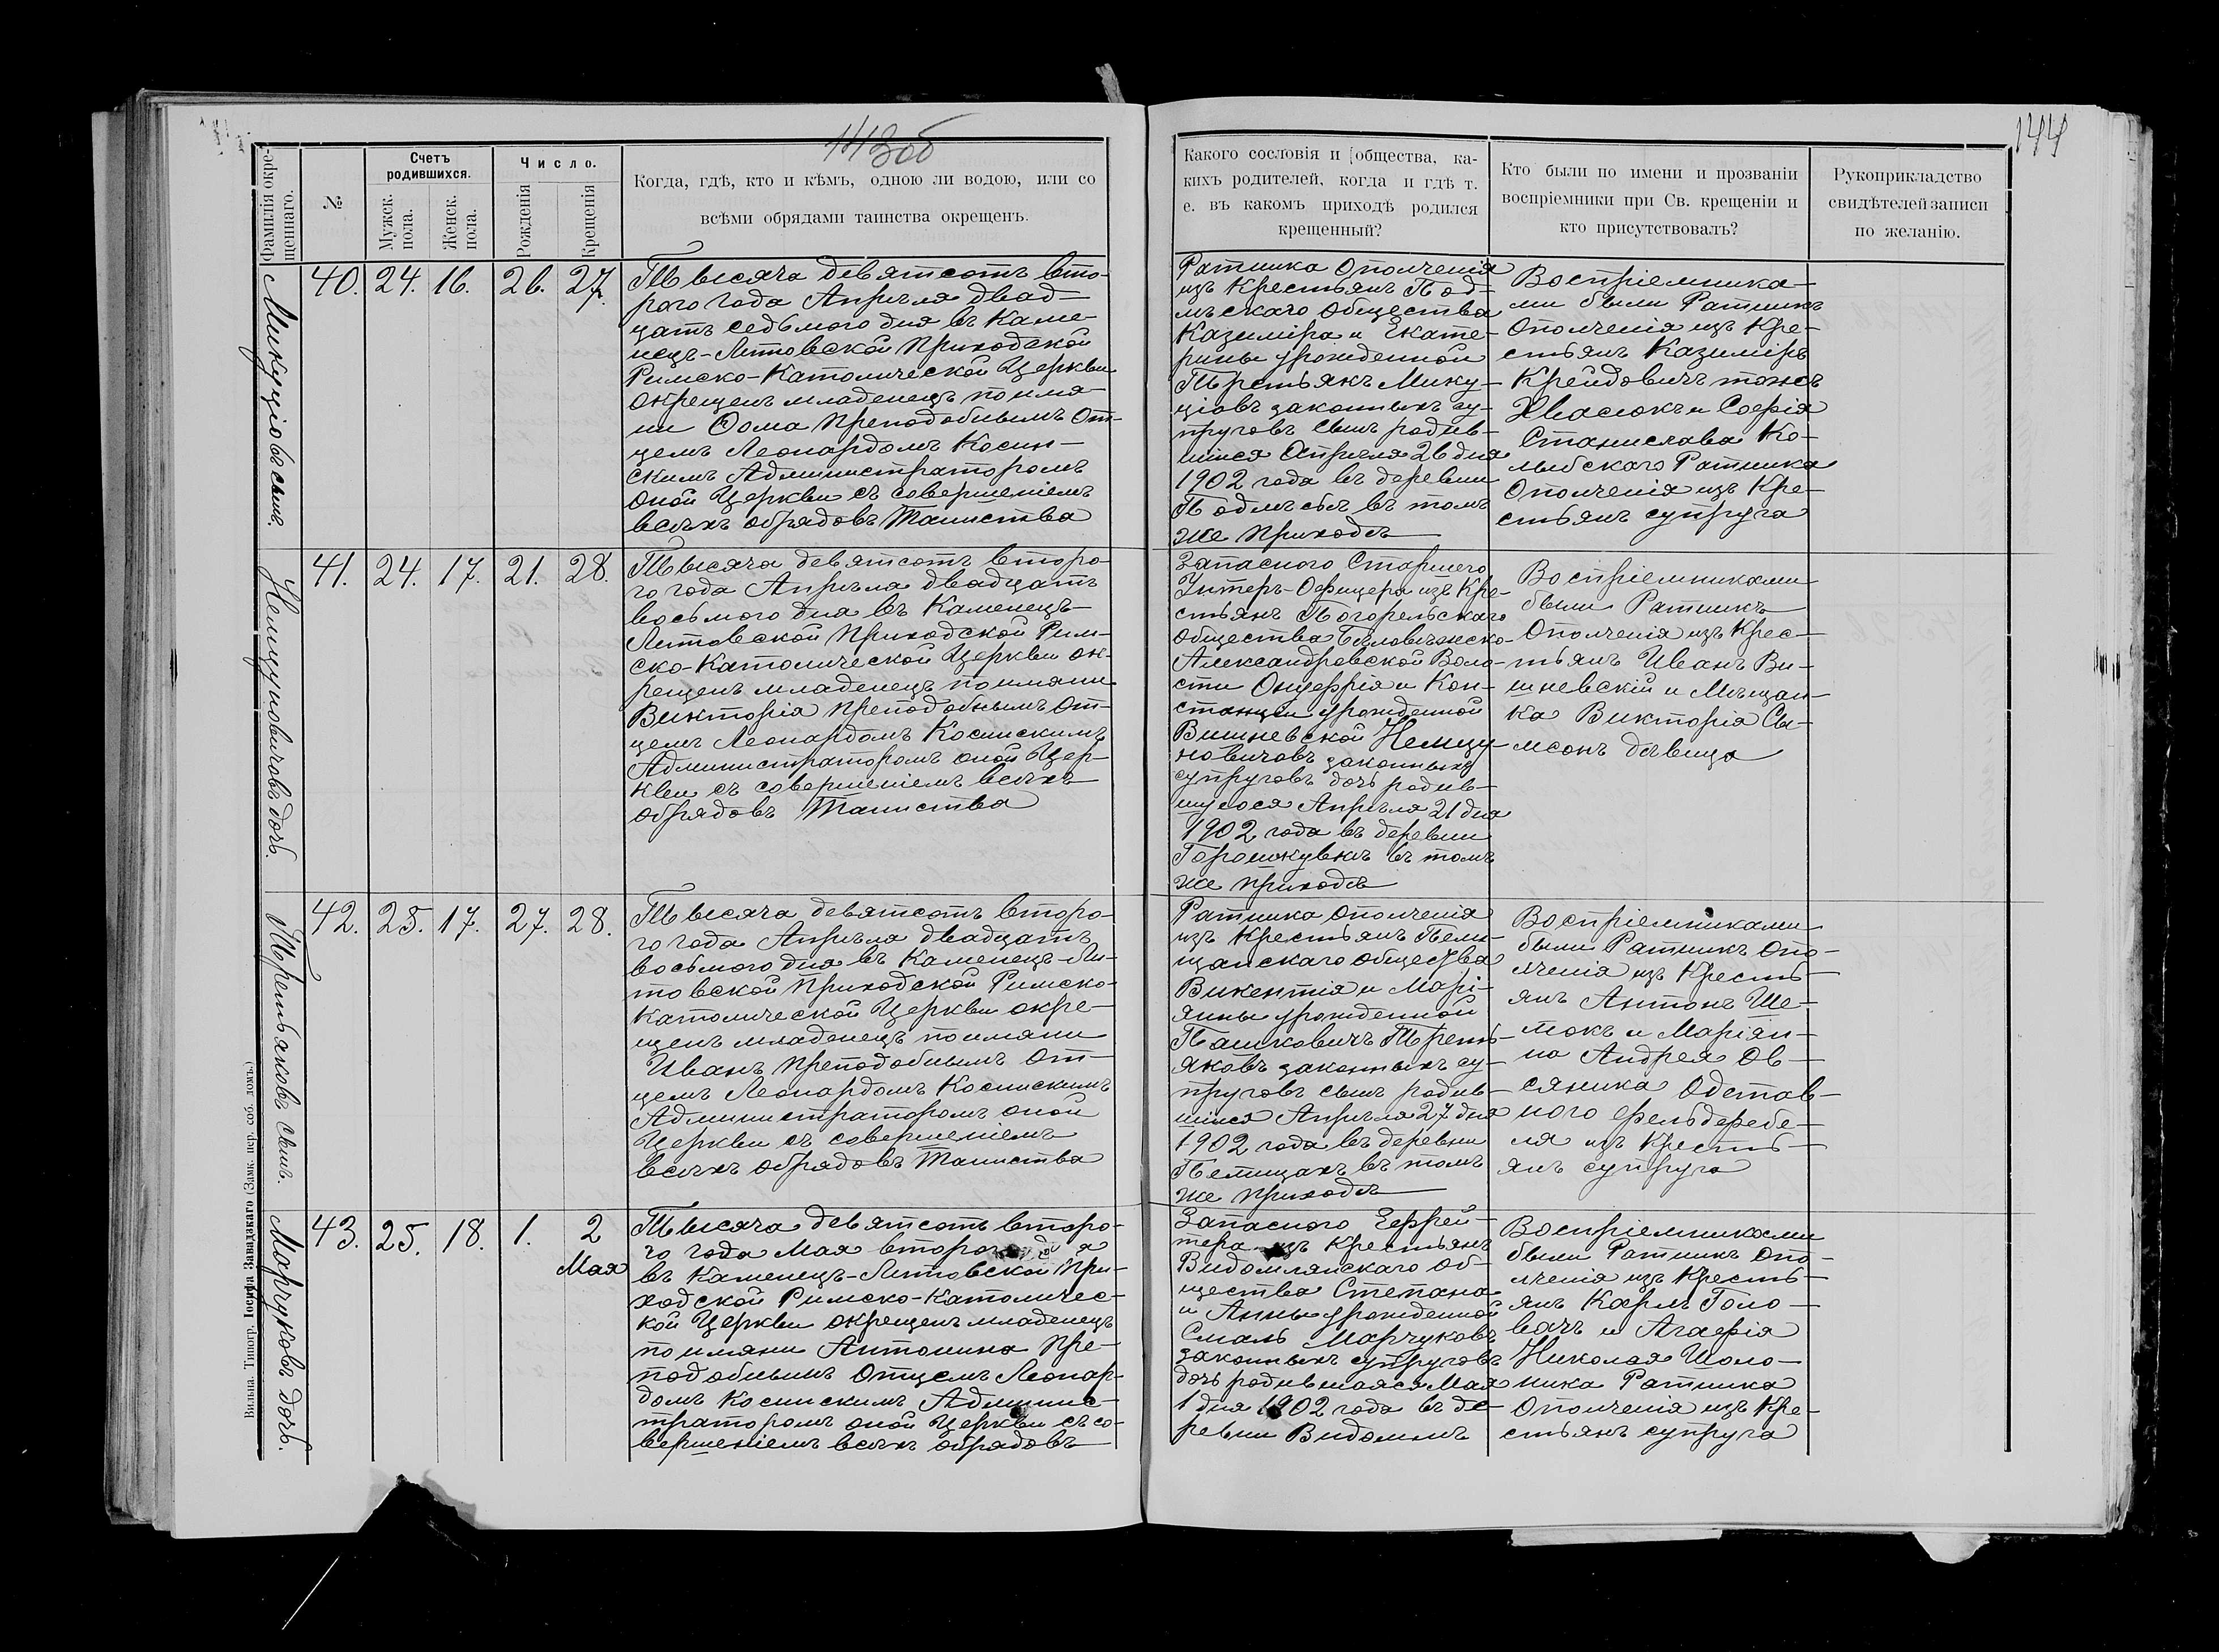 143об
144
Фамилія окре-
щеннаго.
№
Счетъ
родившихся.
Мужск.
пола.
Женск.
пола.
Число.
Рожденія
Крещенія
Когда, гдѣ, кто и кѣмъ, одною ли водою, или со
всѣми обрядами таинства окрещенъ.
Какого сословія и общества, ка-
кихъ родителей, когда и гдѣ т.
е. въ какомъ приходѣ родился
крещенный?
Кто были по имени и прозванію
воспріемники при Св. крещеніи и
кто присутствовалъ?
Рукоприкладство
свидѣтелей записи
по желанію.
Микуціовъ сынъ.
40. 24. 16. 26. 27.
Тысяча девятсотъ вто-
рого года Апрѣля двад-
цать седьмого дня въ Каме-
нецъ-Литовской Приходской
Римско-Католической Церкви
окрещенъ младенецъ по имя-
ни Ѳома Преподобнымъ От-
цемъ Леонардомъ Косин-
скимъ Администраторомъ
оной Церкви съ совершеніемъ
всѣхъ обрядовъ Таинства
Ратника Ополченія
изъ Крестьянъ Под-
лѣскаго Общества
Казимира и Екате-
рины урожденной
Третьякъ Мику-
ціовъ законныхъ су-
пруговъ сынъ родив-
шійся Апрѣля 26 дня
1902 года въ деревни
Подлѣсьѣ въ томъ
же приходѣ
Воспріемника-
ми были Ратникъ
Ополченія изъ Кре-
стьянъ Казимиръ
Крейдовичъ тожъ
Квасюкъ и Софія
Станислава Ко-
лыбскаго Ратника
Ополченія изъ Кре-
стьянъ супруга
Немцуновичовъ дочь.
41. 24. 17. 21. 28.
Тысяча девятсотъ второ-
го года Апрѣля двадцать
восьмого дня въ Каменецъ-
Литовской Приходской Рим-
ско-Католической Церкви ок-
рещенъ младенецъ по имяни
Викторія Преподобнымъ От-
цемъ Леонардомъ Косинскимъ
Администраторомъ оной Цер-
кви съ совершеніемъ всѣхъ
обрядовъ Таинства
Запасного Старшего
Унтеръ-Офицера изъ Кре-
стьянъ Погорельскаго
Общества Бѣловѣжско-
Александровской Воло-
сти Онуфрія и Кон-
станціи урожденной
Вишневской Немцу-
новичовъ законныхъ
супруговъ дочь родив-
шуюся Апрѣля 21 дня
1902 года въ деревни
въ томъ
же приходѣ
Воспріемниками
были Ратникъ
Ополченія изъ Крес-
тьянъ Иванъ Ви-
шневскій и Мѣщан-
ка Викторія Сы-
мсонъ дѣвица
Третьяковъ сынъ.
42. 25. 17. 27. 28.
Тысяча девятсотъ второ-
го года Апрѣля двадцать
восьмого дня въ Каменецъ-Ли-
товской Приходской Римско-
Католической Церкви окре-
щенъ младенецъ по имяни
Иванъ Преподобнымъ От-
цемъ Леонардомъ Косинскимъ
Администраторомъ оной
Церкви съ совершеніемъ
всѣхъ обрядовъ Таинства
Ратника Ополченія
изъ Крестьянъ Пели-
щанскаго Общества
Викентія и Марі-
янны урожденной
Пашковичъ Треть-
яковъ законныхъ су-
пруговъ сынъ родив-
шійся Апрѣля 27 дня
1902 года въ деревни
Пелищахъ въ томъ
же приходѣ
Воспріемниками
были Ратникъ Опо-
лченія изъ Кресть-
янъ Антонъ Ше-
мокъ и Маріян-
на Андрея Ов-
сяника Отстав-
ного фельдфебе-
ля изъ Кресть-
янъ супруга
Марчуковъ дочь.
43. 25. 18. 1. 2
Мая
Тысяча девятсотъ второ-
го года Мая второго дня
въ Каменецъ-Литовской При-
ходской Римско-Католичес-
кой Церкви окрещенъ младенецъ
по имяни Антонина Пре-
подобнымъ Отцемъ Леонар-
домъ Косинскимъ Админис-
траторомъ оной Церкви съ со-
вершеніемъ всѣхъ обрядовъ
Запасного Ефрей-
тера изъ Крестьянъ
Видомлянскаго Об-
щества Степана
и Анны урожденной
Смаль Марчуковъ
законныхъ супруговъ
дочь родившаяся Мая
1 дня 1902 года въ де-
ревни Видомлѣ
Воспріемниками
были Ратникъ Опо-
лченія изъ Кресть-
янъ Карлъ Голо-
вачъ и Агафія
Николая Шоло-
ника Ратника
Ополченія изъ Кре-
стьянъ супруга
Вильна. Типогр. Іосифа Завадзкаго (Замк. пер. соб. домъ.)